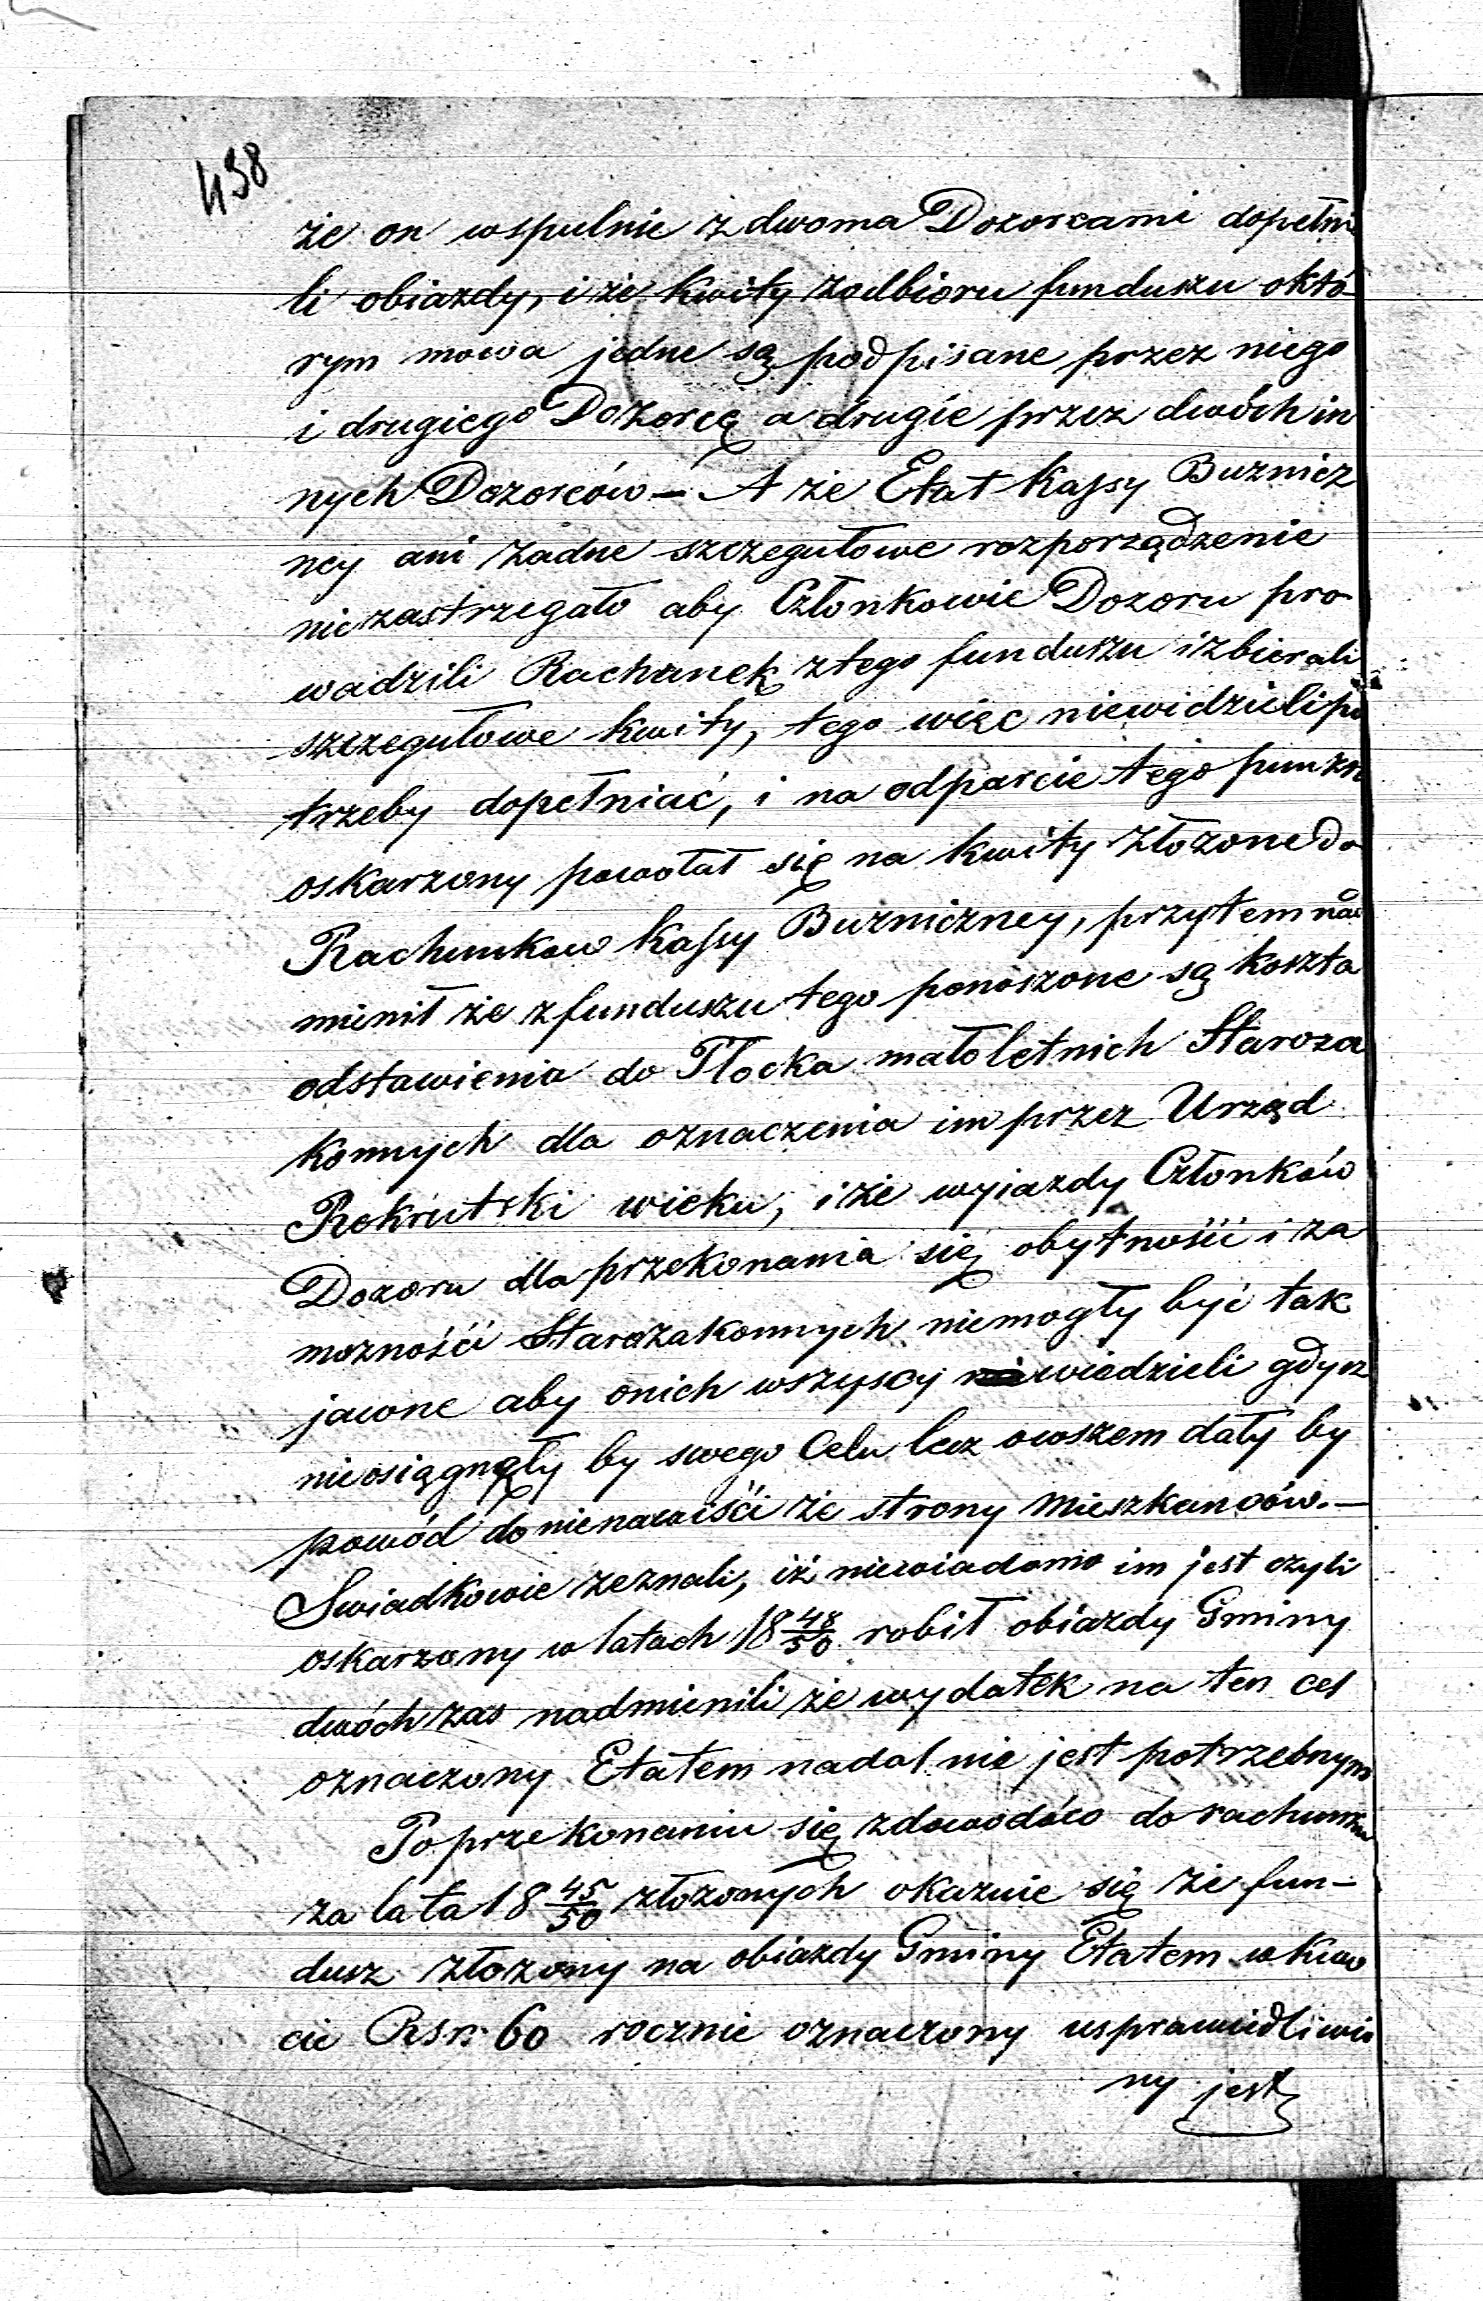 438
że on wspulnie z dwoma Dozorcami dopełni
li obiazdy, i że kwity zodbioru funduszu októ-
rym mowa jedne są podpisane przez niego
i drugiego Dozorcę a drugie przez dwóch in
nych Dozorców – A że Etat Kassy Buznicz
ney ani żadne szczegułowe rozporządzenie
niezastrzegało aby Członkowie Dozoru pro-
wadzili Rachunek ztego funduszu i zbierali
szczegułowe kwity, tego więc niewidzieli po
trzeby dopełniać, i na odparcie tego
oskarzony powołał się na kwity złozone do
Rachunkow Kassy Buzniczney, przytem nad
mienił że z funduszu tego ponoszone są koszta
odstawienia do Płocka małoletnich Staroza
konnych dla oznaczenia im przez Urząd
Rekrutski wieku, i że wyjazdy Członków
Dozoru dla przekonania się obytności i za
mozności Starozakonnych niemogły być tak
jawne aby onich wszyscy wiedzieli gdysz
nieosiągnęły by swego Celu lecz owszem dały by
powód do nienawiści ze strony Mieszkanców. –
Swiadkowie zeznali, iż niewiadomo im jest czyli
oskarzony w latach 18 48/50 robił obiazdy Gminy
dwóch zas nadmienili że wydatek na ten cel
oznaczony Etatem nadal nie jest potrzebnym
Po przekonaniu się zdowodów do rachunków
za lata 18 45/50 złozonych okazuie się że fun-
dusz złozony na obiazdy Gminy Etatem w kwo
cie Rsr. 60 rocznie oznaczony usprawiedliwio
ny jest